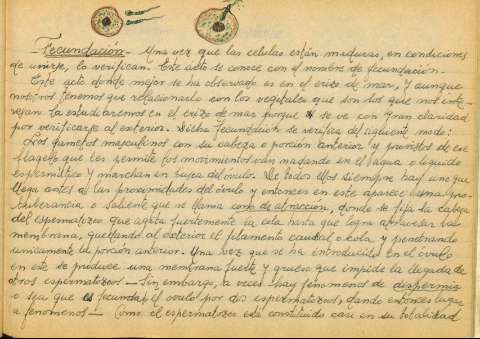 Fecundación.- Una vez que las celulas están maduras, en condiciones
de unirse, lo verifican. Este acto se conoce con el nombre de fecundación.-
Este acto donde mejor se ha observado es en el erizo de mar, y aunque
nosotros tenemos que relacionarlo con los vegetales que son los que nos inte-
resan la estudiaremos en el erizo de mar porque se ve con gran claridad
por verificarse al exterior. Dicha fecundación se verifica del siguiente modo:
Los gametos masculinos con su cabeza o porción anterior y provistos de ese
flagelo que les permite los movimientos van nadando en el agua o liquido
espermático y marchan en busca del óvulo. De todos ellos siempre hay uno que
llega antes a las proximidades del óvulo y entonces en este aparece una pro-
tuberancia o saliente que se llama cono de atracción, donde se fija la cabeza
del espermatozoo que agita fuertemente la cola hasta que logra atravesar la
membrana, quedando al exterior el filamento caudal o cola y penetrando
unicamente la porción anterior. Una vez que se ha introducido en el óvulo
en este se produce una membrana fuerte y gruesa que impide la llegada de
otros espermatozoos.- Sin embargo, a veces hay fenómenos de dispermia
o sea que es fecundado el óvulo por dos espermatozoos, dando entonces lugar
a fenómenos.- Como el espermatozoo está constituido casi en su totalidad